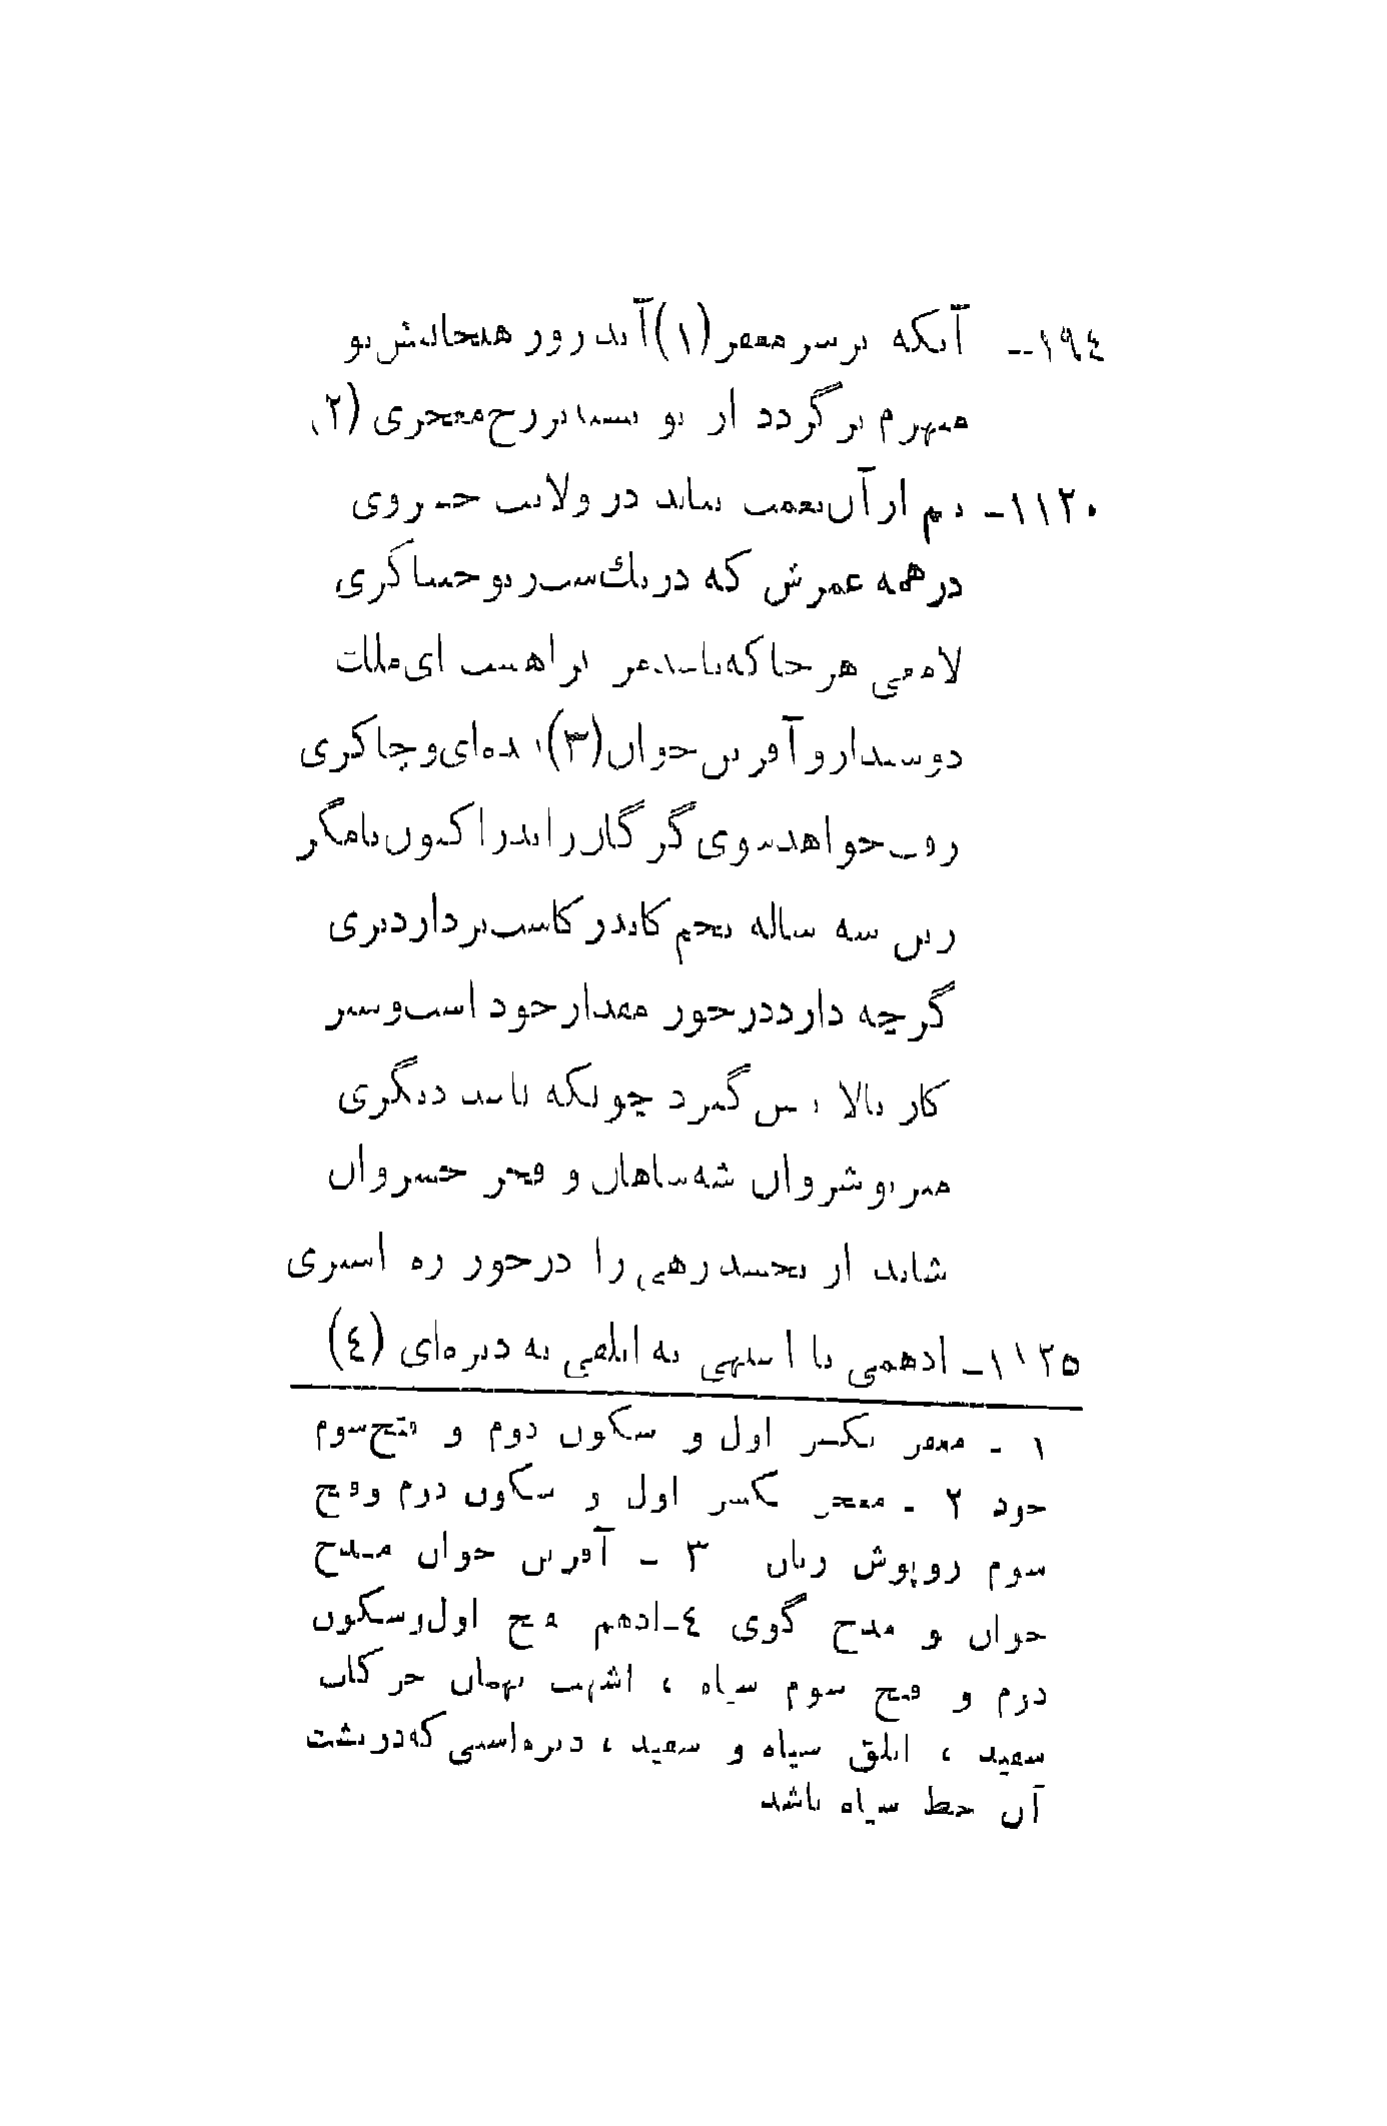 ۱۹٤-- آنکه بر سر مغفر (۱) آید روز هیجا پیش تو
منهزم برگردد از تو بسته بر رخ معجری (۲)
۱۱۲۰- نیم از آن نعمت نیابد در ولایت خسروی
در همه عمرش که در یك شب ز تو خنیاگری
هر جا که باشد مر ترا هست ای ملك
دوستدار و آفرین خوان (۳) بنده‌ای و چاکری
رفت خواهد سوی گرگان زاندر اکنون با مگر
زین سه ساله تخم کاندر کاشت بردارد بری
گرچه دارد در خور مقدار خود اسب و ستر
کار بالا گیرد چونکه باشد دیگری
میر نوشروان شه شاهان و فخر خسروان
شاید ار بخشد رهی را در خور ره استری
۱۱۲٥- ادهمی یا اشهبی یه ابلقی یه دیزه‌ای (٤)
۱ - مغفر بکسر اول و سکون دوم و فتح سوم
خود ۲ - معجر بکسر اول و سکون دوم و فتح
سوم روپوش زنان ۳ - آفرین خوان مدح
خوان و مدح گوی ٤- ادهم فتح اول و سکون
دوم و فتح سوم سیاه ، اشهب بهمان حرکات
سفید ، ابلق سیاه و سفید ، دیزه اسبی که در پشت
آن خط سیاه باشد